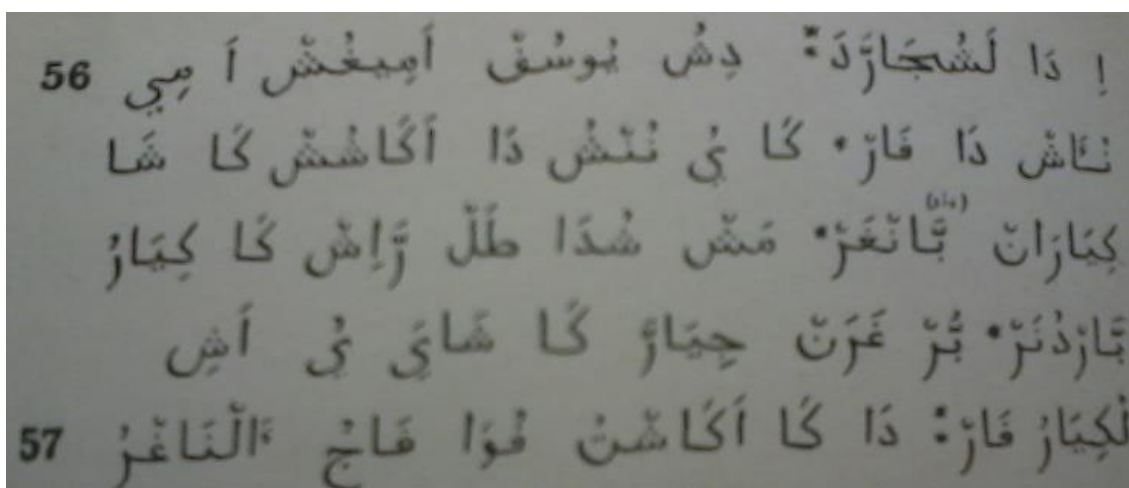 56 اِ دَا لَشُجَارَّدَ ؞ دِشُ يُوسُفْ اَمِيغُشْ اَ مِي
نَاشْ دَا فَارْ * كَا يُ نُنْشُ دَا اَكَاشُشْ كَا شَا
كِيَارَانْ بَّانْغَرْ * مَشْ شُدَا طَلْ رَّاِشْ كَا كِيَارُ
بَّارْدُنَرْ * بُّرْ غَرَنْ جِيَارَّ كَا شَايَ يُ اَشِ
57 لْكِيَارُ فَارْ ؞ دَا كَا اَكَاشْتُ فُوَا فَاجُ اَلْنَاغْرُ